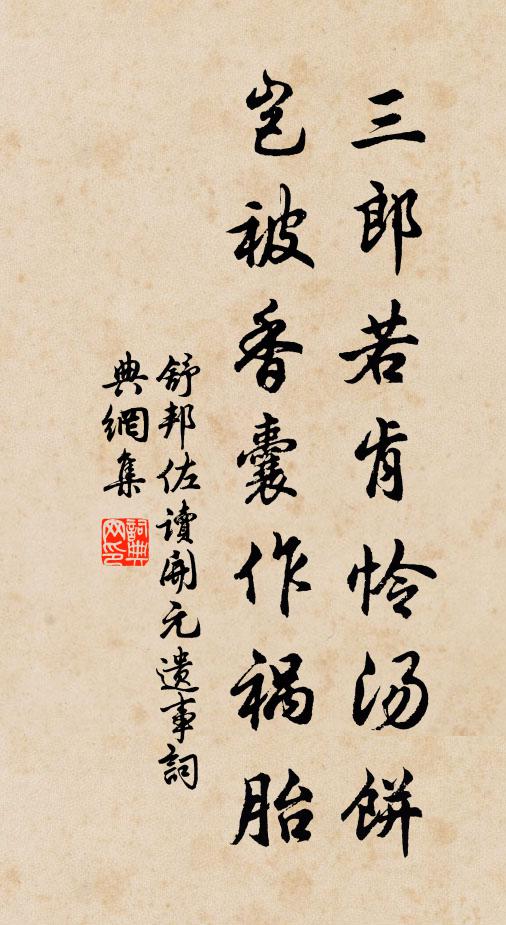 三郎若肯怜汤餅
岂被香囊作祸胎
舒邦佐讀開元遗事詞
典網集
詞典网印